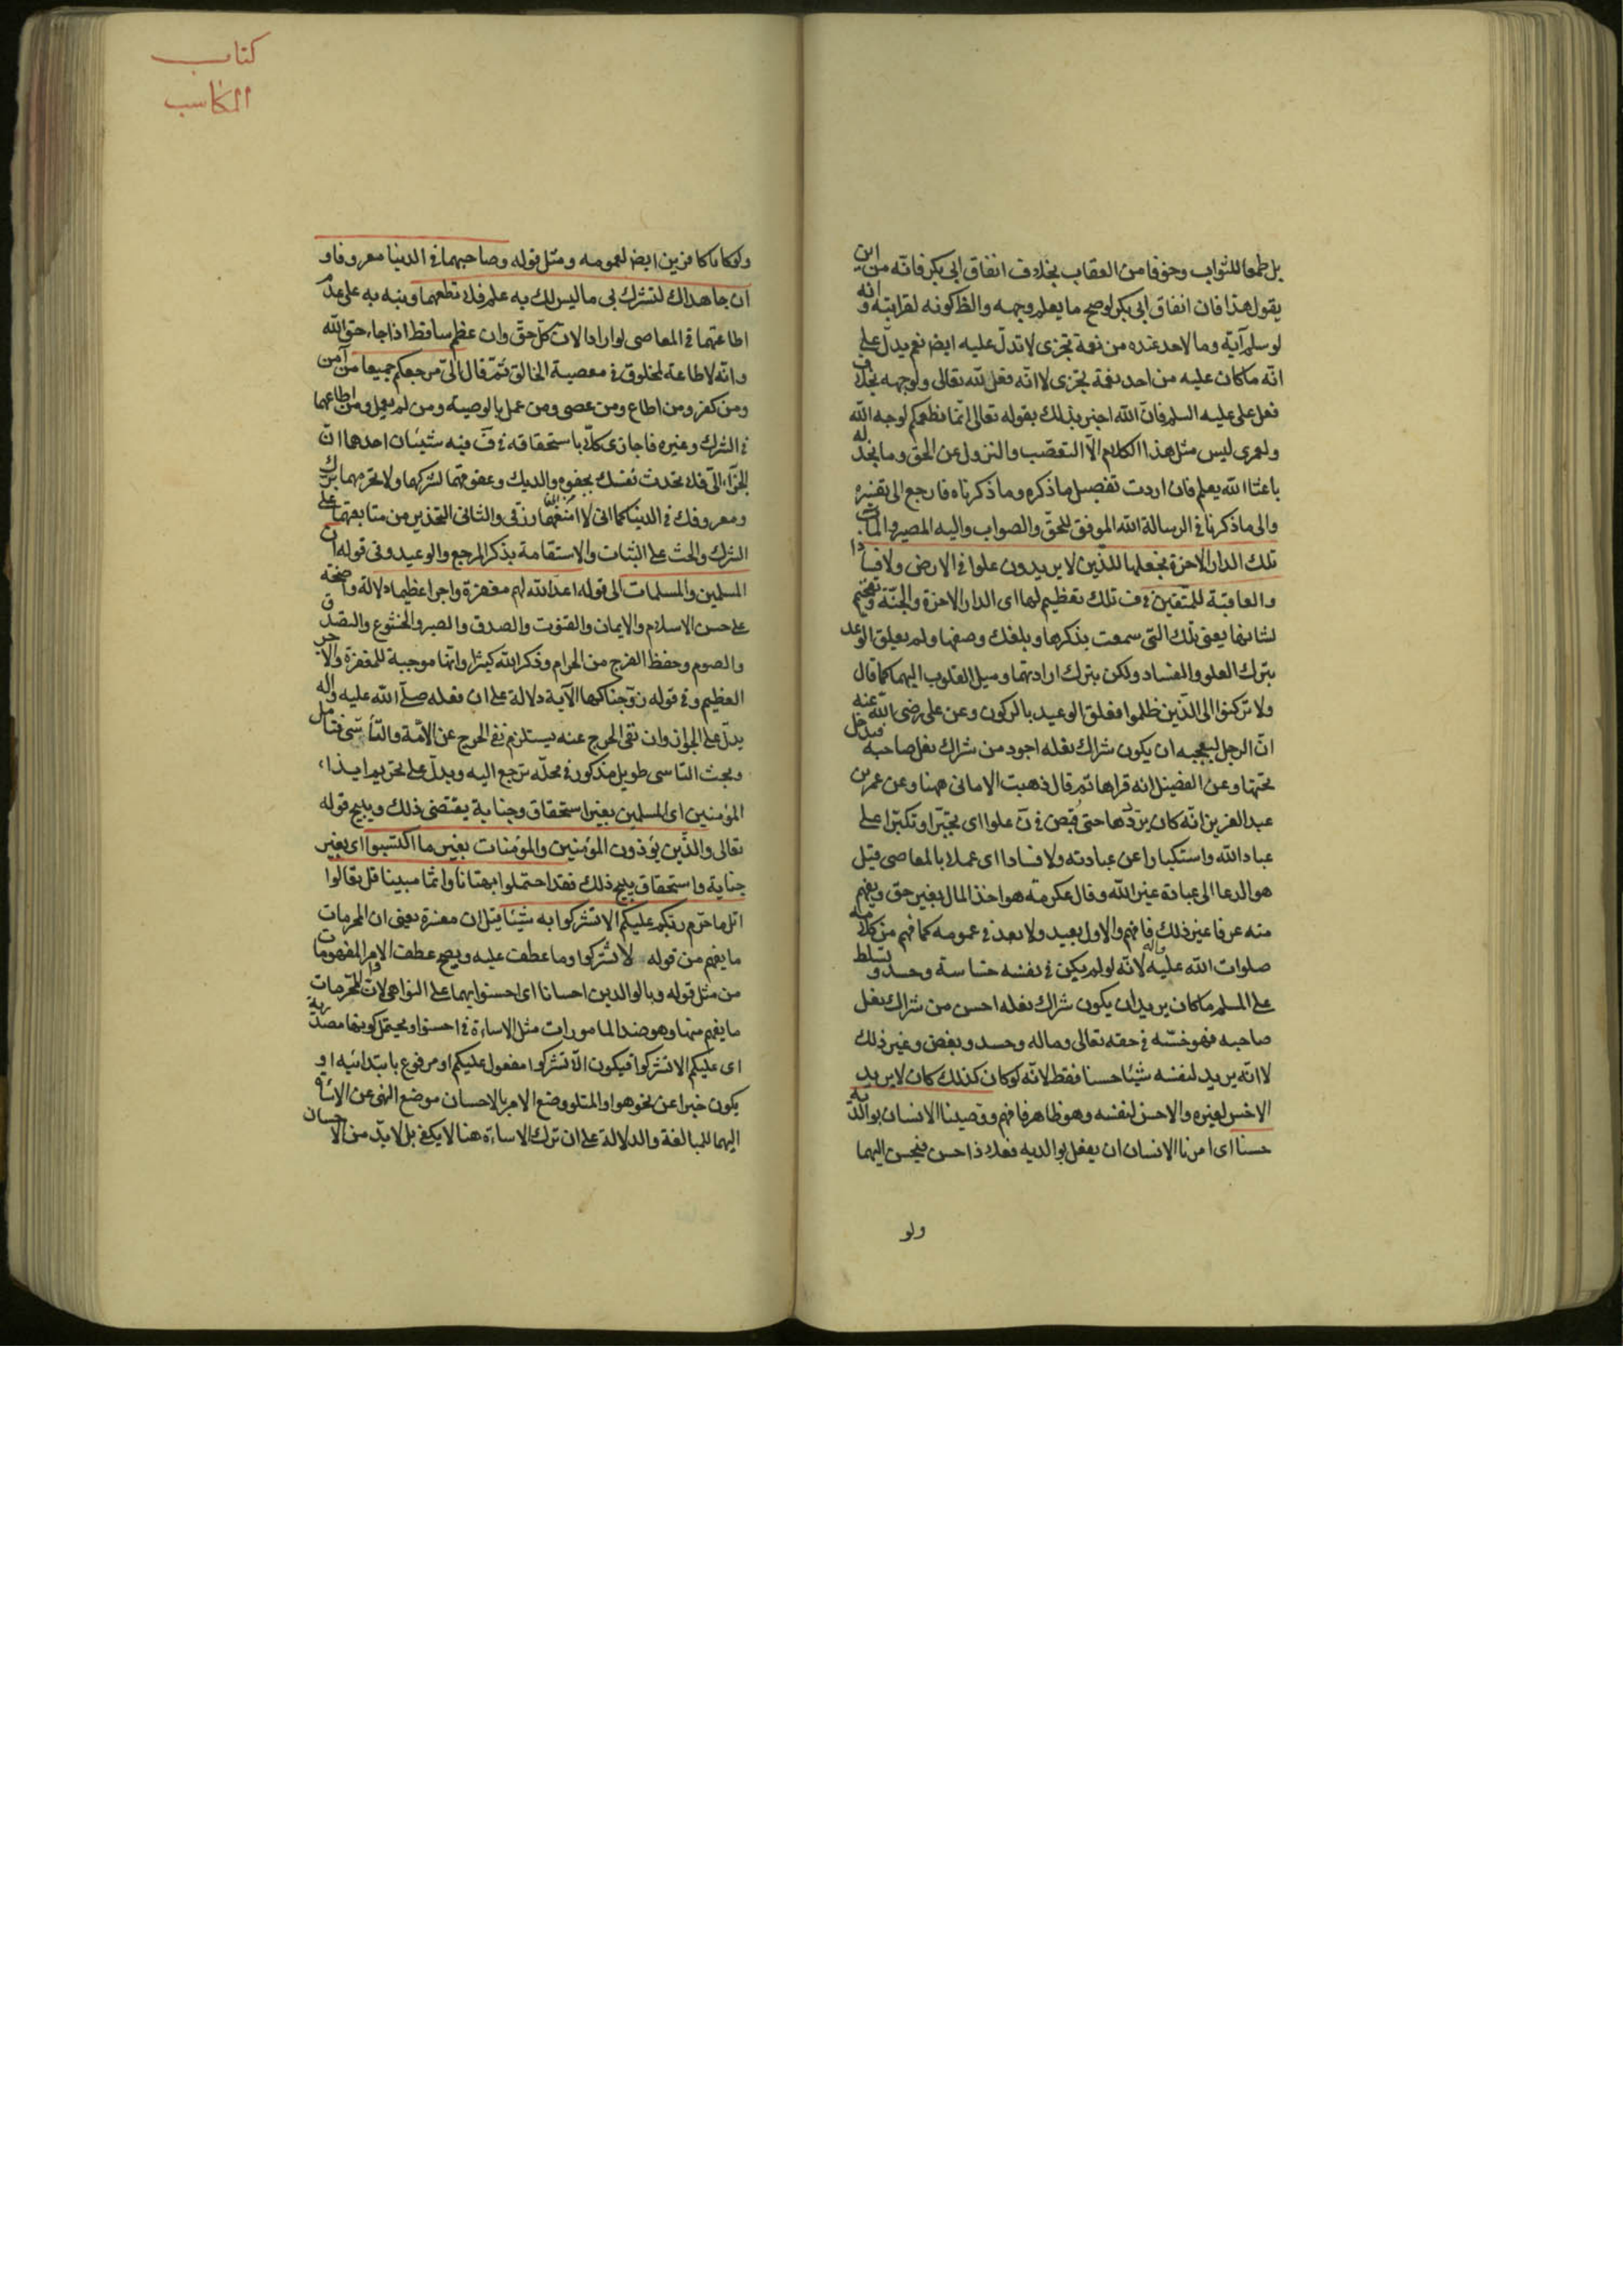 بل طمعا للثواب وخوفا من العقاب بخلاف انفاق ابى بكر فانه من اين
يقول هذا فان انفاق ابى بكر لو صح ما يعلم وجهه والظ كونه لقرابته و انه
لو سلم آية وما لاحد عنده من نعمة تجزى لا تدل عليه ايض نعم يدل على
انه ما كان عليه من احد نعمة يجزى لا انه فعل لله تعالى ولوجهه بخلاف
فعل على عليه السلم فان الله اخبر بذلك بقوله تعالى انما نطعمكم لوجه الله
ولعمرى ليس مثل هذا الكلام الا التعصب والنزول عن الحق وما نجد له
باعثا الله يعلم فان اردت تفصيل ما ذكره وما ذكرناه فارجع الى تفسيره
والى ما ذكرنا فى الرسالة الله الموفق للحق والصواب واليه المصير والمآب
تلك الدار الاخرة نجعلها للذين لا يريدون علوا فى الارض ولا فسادا
والعاقبة للمتقين فى ف تلك تعظيم لها اى الدار الاخرة والجنة وتفخيم
لشانها يعنى تلك التى سمعت بذكرها وبلغك وصفها ولم يعلق الوعد
بترك العلو والفساد ولكن بترك ارادتهما وميل القلوب اليهما كما قال
ولا تركنوا الى الذين ظلموا فعلق الوعيد بالركون وعن على رضى الله عنه
ان الرجل ليعجبه ان يكون شراك نعله اجود من شراك نعل صاحبه فيدخل
تحتها وعن الفضيل انه قراها ثم قال ذهبت الامانى ههنا وعن عمر بن
عبد العزيز انه كان يرددها حتى قبض فى ن علوا اى تجبرا وتكبرا على
عباد الله واستكبارا عن عبادته ولا فسادا اى عملا بالمعاصى قيل
هو الدعا الى عبادة غير الله وقال عكرمة هو اخذ المال بغير حق ويفهم
منه عرفا غير ذلك فافهم والاول بعيد ولا بعد فى عمومه كما فهم من كلامه
صلوات الله عليه واله لانه لو لم يكن فى نفسه خساسة وحسد و تسلط
على المسلم ما كان يريد ان يكون شراك نعله احسن من شراك نعل
صاحبه فهو خسة فى حقه تعالى وماله وحسد وبغض وغير ذلك
لا انه يريد لنفسه شيئا حسنا فقط لانه لو كان كذلك كان لا يريد
الاخس لغيره والاحسن لنفسه وهو ظاهر فافهم ووصينا الانسان بوالديه
حسنا اى امرنا الانسان ان يفعل بوالديه فعلا ذا حسن فيحسن اليهما
ولو
كتاب
المكاسب
ولو كانا كافرين ايض لعمومه ومثل قوله وصاحبهما فى الدنيا معروفا و
ان جاهداك لتشرك بى ما ليس لك به علم فلا تطعهما ونبه به على عدم
اطاعتهما فى المعاصى لو ارادا لان كل حق وان عظم ساقط اذا جاء حق الله
وانه لا طاعة لمخلوق فى معصية الخالق ثم قال الى مرجعكم جميعا من آمن
ومن كفر ومن اطاع ومن عصى ومن عمل بالوصية ومن لم يعمل ومن اطاعهما
فى الشرك وغيره فاجازى كلا باستحقاقه فى ف فيه شيئان احدهما ان
الجزاء الى فلا تحدث نفسك بجفوة والديك وعقوقهما لشركهما ولا تحرمهما برك
ومعروفك فى الدنيا كما انى لا امنعهما رزقى والثانى التحذير من متابعتهما على
الشرك والحث على الثبات والاستقامة بذكر المرجع والوعيد وفى قوله ان
المسلمين والمسلمات الى قوله اعد الله لهم مغفرة واجرا عظيما دلالة واضحة
على حسن الاسلام والايمان والقنوت والصدق والصبر والخشوع والتصدق
والصوم وحفظ الفرج من الحرام وذكر الله كثيرا وانها موجبة للمغفرة والاجر
العظيم وفى قوله زوجناكها الآية دلالة على ان فعله صلى الله عليه واله
يدل على الجواز وان نفى الحرج عنه يستلزم نفى الحرج عن الامة والتأسى فتامل
وبحث التاسى طويل مذكور فى محله نرجع اليه ويدل على تحريم ايذاء
المؤمنين اى المسلمين بغير استحقاق وجناية يقتضى ذلك ويبيح قوله
تعالى والذين يؤذون المؤمنين والمؤمنات بغير ما اكتسبوا اى بغير
جناية واستحقاق يبيح ذلك فقد احتملوا بهتانا واثما مبينا قل تعالوا
اتل ما حرم ربكم عليكم الا تشركوا به شيئا قيل ان مفسرة يعنى ان المحرمات
ما يفهم من قوله لا تشركوا وما عطف عليه ويصح عطف الامر المفهومات
من مثل قوله وبالوالدين احسانا اى احسنوا بهما على النواهى لان المحرمات
ما يفهم منها وهو ضد المامورات مثل الاساءة فى احسنوا ويحتمل كونها مصدرية
اى عليكم الا تشركوا فيكون الا تشركوا مفعول عليكم او مرفوع بابتدائيه او
يكون خبرا عن نحو هو او المتلو ووضع الامر بالاحسان موضع النهى عن الاساءة
اليهما للمبالغة والدلالة على ان ترك الاساءة هنا لا يكفى بل لا بد من الاحسان